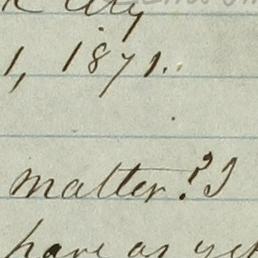 k City
1, 1871.
matter? I
have as yet